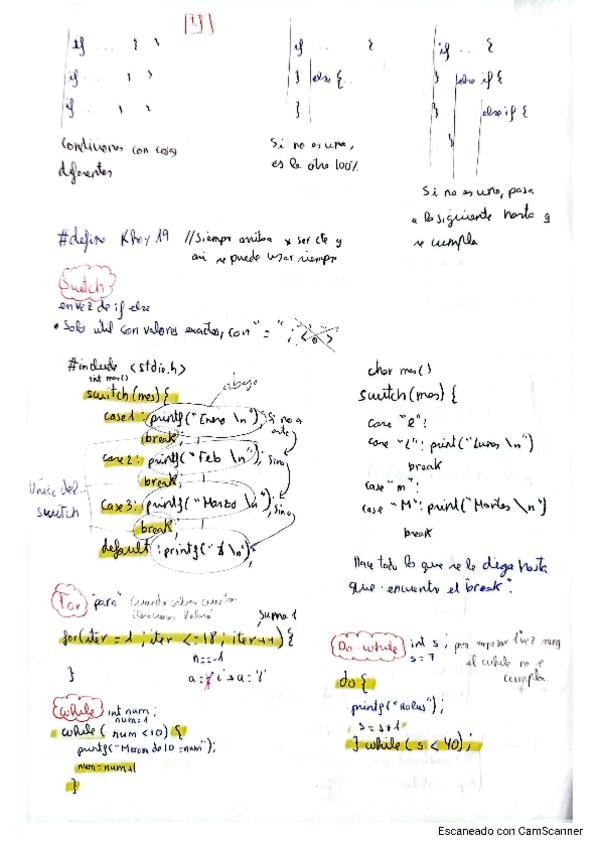 if ... { }
if ... { }
if ... { }
Condiciones con cosas
diferentes
if ... {
} else {...
}
Si no es una,
es la otra 100%
if ... {
} else if {
} else if {
}
Si no es uno, pasa
a la siguiente hasta q
se cumpla
#define 19 //Siempre arriba x ser cte y
así se puede usar siempre
Switch
en vez de if else
• Solo útil con valores exactos, con "="; < o >
#include <stdio.h>
int mes()
switch(mes){
abajo
case 1: printf("Enero \n");
Si no a
este
break;
case 2: printf("Feb \n");
Sino
break;
case 3: printf("Marzo \n");
Sino
break;
default: printf(" \n");
switch
char mes()
switch(mes){
case "l":
case "L": print("Lunes \n")
break
case "m":
case "M": print("Martes \n")
break
Hace todo lo que se le diga hasta
que encuentre el "break".
For "para" Cuando sabes cuantas
iteraciones
suma 1
for(iter = 1; iter <= 18; iter++){
n==-1
}
While int num;
num=1
while( num <10) {
printf("Menor de 10 =num");
num=num+1
}
Do-while int s; 1ª vez
s = 7 el while no se
cumpla
do{
printf("Holus");
s = s+1
} while( s < 40);
Escaneado con CamScanner